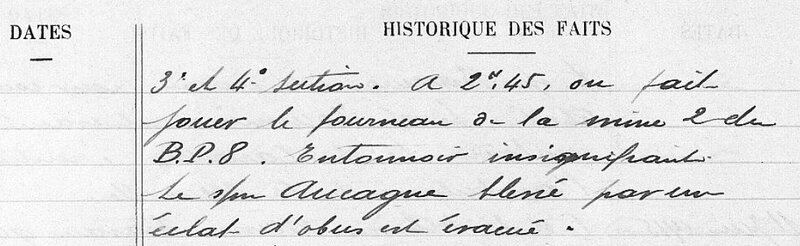 DATES
HISTORIQUE DES FAITS
3e et 4e Section. A 2h.45, on fait
jouer le fourneau de la mine 2 du
B.P.8. Entonnoir insignifiant.
Le spr Aucagne blessé par un
éclat d'obus est évacué.